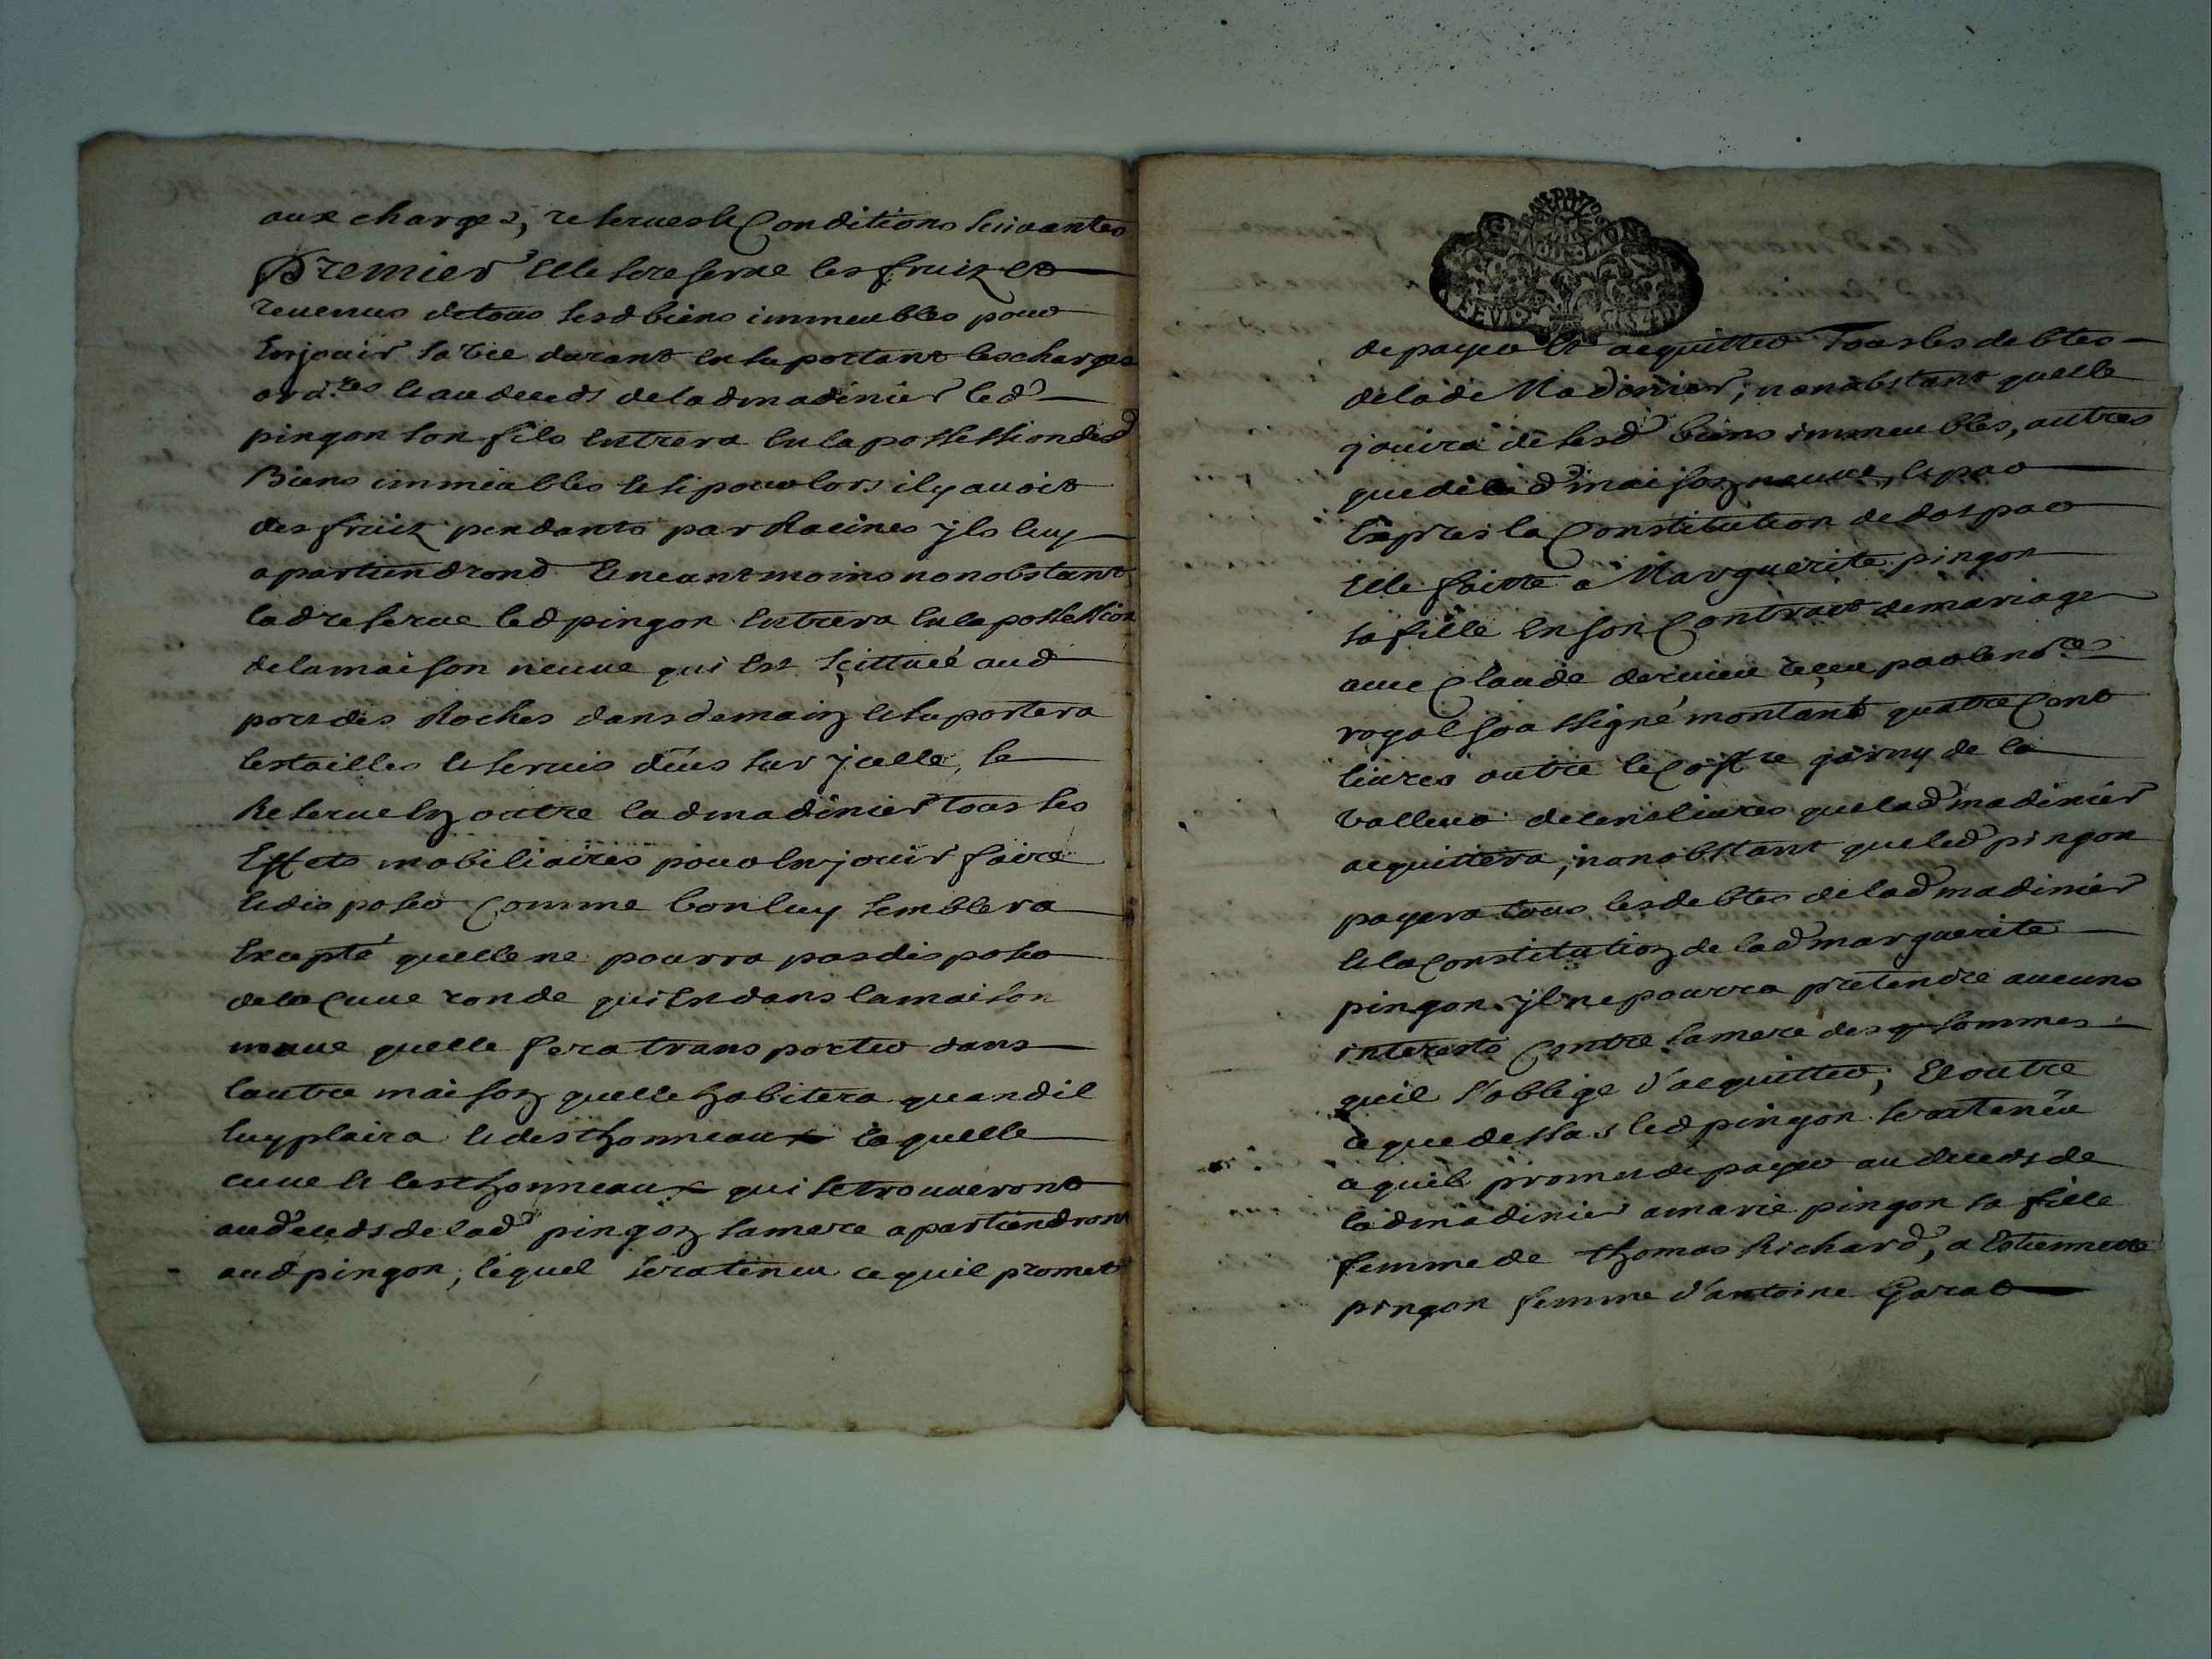 aux charges, reserues & Conditions suivantes
Premier elle se reserue les fruiz et
reuenus de tous sesd biens immeubles pour
En jouir sa vie durant en suportant les charges
ord.res & au deceds de lad madinier led
pingon son fils entrera en la possession desd
Biens immeubles & si pour lors il y auoit
des fruiz pendants par Racines yls luy
apartiendrond & neantmoins nonobstant
lad reserue led pingon entrera en la possession
de la maison neuue qui est scittuée aud
port des Roches dans demain & suportera
les tailles & seruis deus sur jcelle, se
Reserue en outre lad madinier tous ses
Effets mobiliaires pour en jouir faire
& disposer Comme bon luy semblera
Excepté quelle ne pourra pas disposer
de la Cuue ronde qui est dans la maison
neuue quelle fera transporter dans
lautre maison quelle habitera quand il
luy plaira & des thonneaux laquelle
cuue & les thonneaux qui se trouueront
au deceds de lad pingon sa mere apartiendront
aud pingon, lequel sera tenu ce quil promet
de payer & acquitter Tous les debtes
de lade Madinier, nonobstant quelle
jouira de sesd biens immeubles, autres
que de lad maison neuue, & par
Exprès la Constitution de dot par
Elle faitte a Marguerite pingon
sa fille en son Contract de mariage
auec Claude receu par le no.re
royal soussigné montant quatre Cent
liures outre le Coffre garny de la
valleur de liures que lad madinier
acquittera, nonobstant que led pingon
payera tous les debtes de lad madinier
& la Constitution de lad marguerite
pingon yl ne pourra pretendre aucuns
interests Contre sa mere des sommes
quil soblige d'acquitter, Et outre
ce que dessus led pingon sera tenu
ce quil promet de payer au deceds de
lad madinier a marie pingon sa fille
femme de thomas Richard, a Estiennette
pingon femme d'antoine Garat